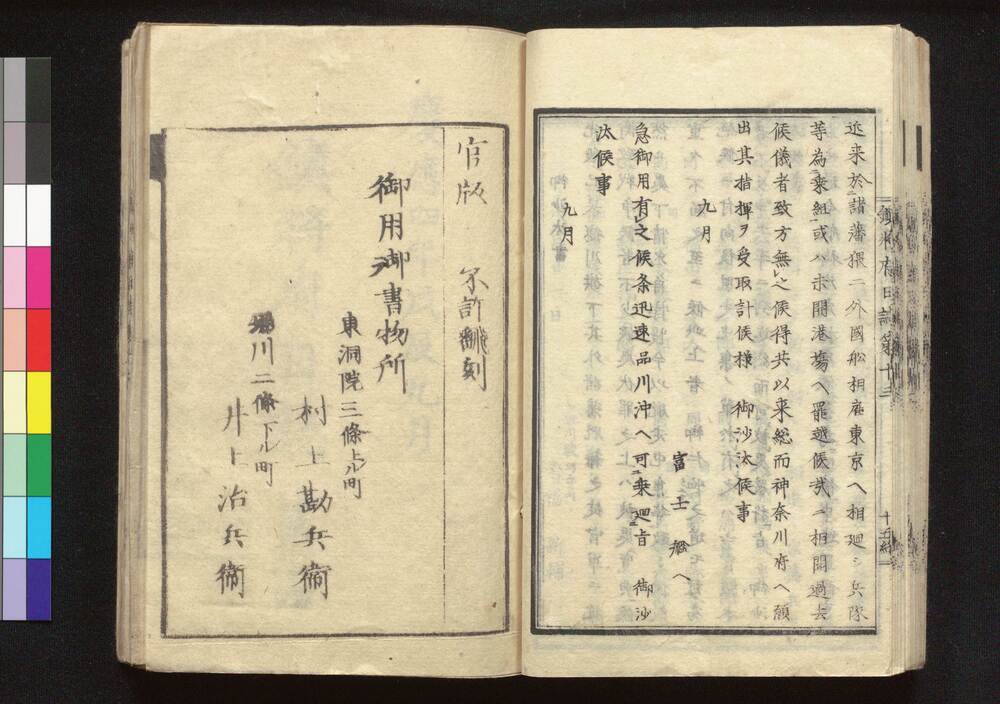 近来於諸藩猥ニ外國船相雇東京ヘ相廻シ兵隊
等為乗組或ハ未開港場ヘ罷越候哉ニ相聞過去
候儀者致方無之候得共以来総而神奈川府ヘ願
出其指揮ヲ受取計候様 御沙汰候事
九月
富士艦ヘ
急御用有之候条迅速品川沖ヘ可乗廻旨 御沙
汰候事
九月
鎮将府日誌第十三
十五終
官版 不許翻刻
御用御書物所
東洞院三條上ル町
村上勘兵衛
堀川二條下ル町
井上治兵衛